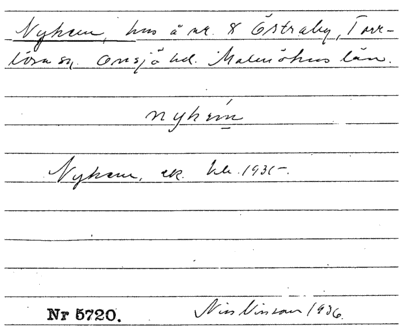 Nyhem, hus å nr. 8 Östraby, Torr-
lösa sn. Onsjö hd. Malmöhus län.
nyhem
Nyhem, ek. kb. 1935.
Nr 5720.
Nils Nilsson 1936.